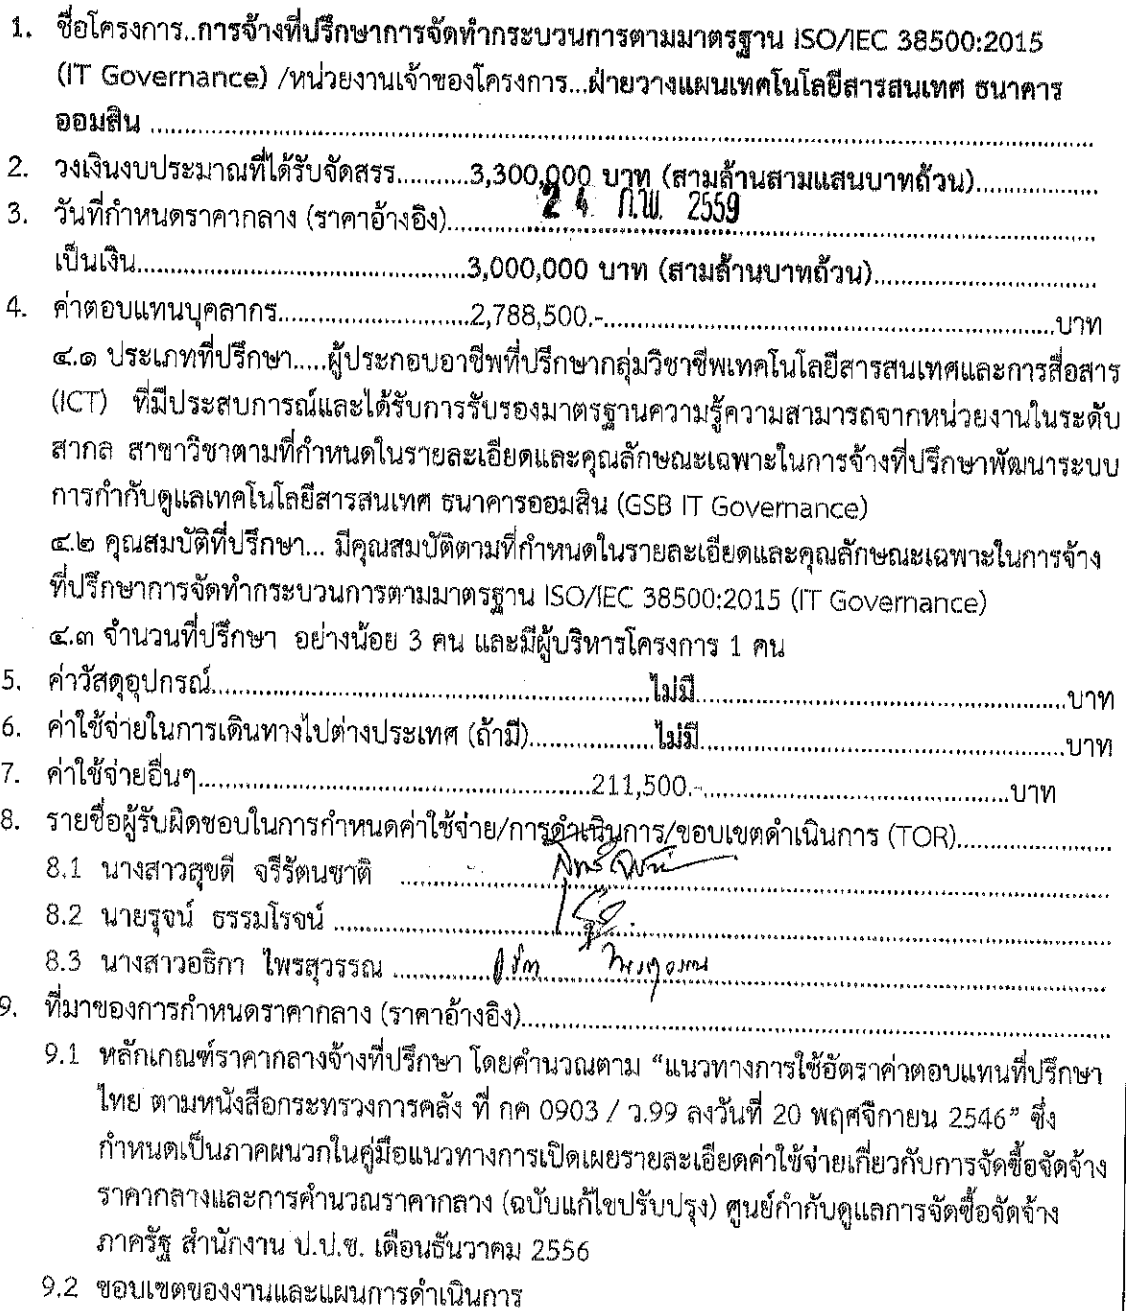 1. ชื่อโครงการ..การจ้างที่ปรึกษาการจัดทำกระบวนการตามมาตรฐาน ISO/IEC 38500:2015
(IT Governance) /หน่วยงานเจ้าของโครงการ...ฝ่ายวางแผนเทคโนโลยีสารสนเทศ ธนาคาร
ออมสิน ..........
2. วงเงินงบประมาณที่ได้รับจัดสรร...........3,300,000 บาท (สามล้านสามแสนบาทถ้วน)..................
3. วันที่กำหนดราคากลาง (ราคาอ้างอิง)..........24 ก.พ. 2559..........
เป็นเงิน..........3,000,000 บาท (สามล้านบาทถ้วน)..........
4. ค่าตอบแทนบุคลากร..........2,788,500.-..........บาท
๔.๑ ประเภทที่ปรึกษา.....ผู้ประกอบอาชีพที่ปรึกษากลุ่มวิชาชีพเทคโนโลยีสารสนเทศและการสื่อสาร
(ICT) ที่มีประสบการณ์และได้รับการรับรองมาตรฐานความรู้ความสามารถจากหน่วยงานในระดับ
สากล สาขาวิชาตามที่กำหนดในรายละเอียดและคุณลักษณะเฉพาะในการจ้างที่ปรึกษาพัฒนาระบบ
การกำกับดูแลเทคโนโลยีสารสนเทศ ธนาคารออมสิน (GSB IT Governance)
๔.๒ คุณสมบัติที่ปรึกษา... มีคุณสมบัติตามที่กำหนดในรายละเอียดและคุณลักษณะเฉพาะในการจ้าง
ที่ปรึกษาการจัดทำกระบวนการตามมาตรฐาน ISO/IEC 38500:2015 (IT Governance)
๔.๓ จำนวนที่ปรึกษา อย่างน้อย 3 คน และมีผู้บริหารโครงการ 1 คน
5. ค่าวัสดุอุปกรณ์..........ไม่มี..........บาท
6. ค่าใช้จ่ายในการเดินทางไปต่างประเทศ (ถ้ามี)..........ไม่มี..........บาท
7. ค่าใช้จ่ายอื่นๆ..........211,500.-..........บาท
8. รายชื่อผู้รับผิดชอบในการกำหนดค่าใช้จ่าย/การดำเนินการ/ขอบเขตดำเนินการ (TOR)..........
8.1 นางสาวสุขดี จรีรัตนชาติ ..........
8.2 นายรุจน์ ธรรมโรจน์ ..........
8.3 นางสาวอธิกา ไพรสุวรรณ ..........
9. ที่มาของการกำหนดราคากลาง (ราคาอ้างอิง)..........
9.1 หลักเกณฑ์ราคากลางจ้างที่ปรึกษา โดยคำนวณตาม “แนวทางการใช้อัตราค่าตอบแทนที่ปรึกษา
ไทย ตามหนังสือกระทรวงการคลัง ที่ กค 0903 / ว.99 ลงวันที่ 20 พฤศจิกายน 2546” ซึ่ง
กำหนดเป็นภาคผนวกในคู่มือแนวทางการเปิดเผยรายละเอียดค่าใช้จ่ายเกี่ยวกับการจัดซื้อจัดจ้าง
ราคากลางและการคำนวณราคากลาง (ฉบับแก้ไขปรับปรุง) ศูนย์กำกับดูแลการจัดซื้อจัดจ้าง
ภาครัฐ สำนักงาน ป.ป.ช. เดือนธันวาคม 2556
9.2 ขอบเขตของงานและแผนการดำเนินการ